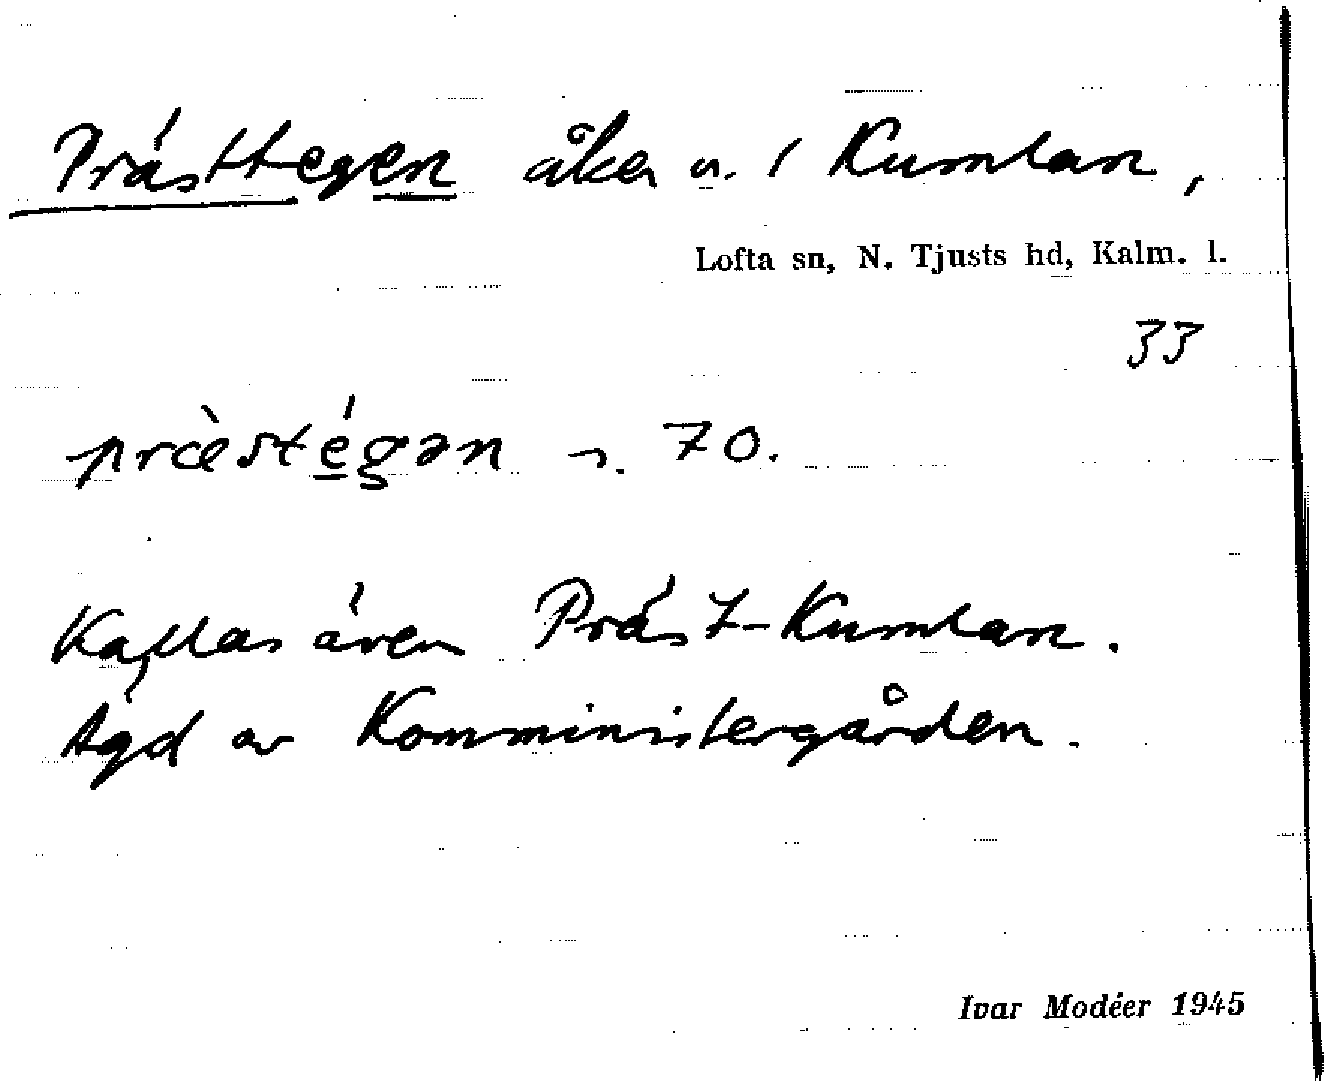 Prästtegen åker n. i Kumlan,
Lofta sn, N. Tjusts hd, Kalm. l.
33
præ̀stégən 70.
Kallas även Präst-Kumlan.
Ägd av Komministergården.
Ivar Modéer 1945